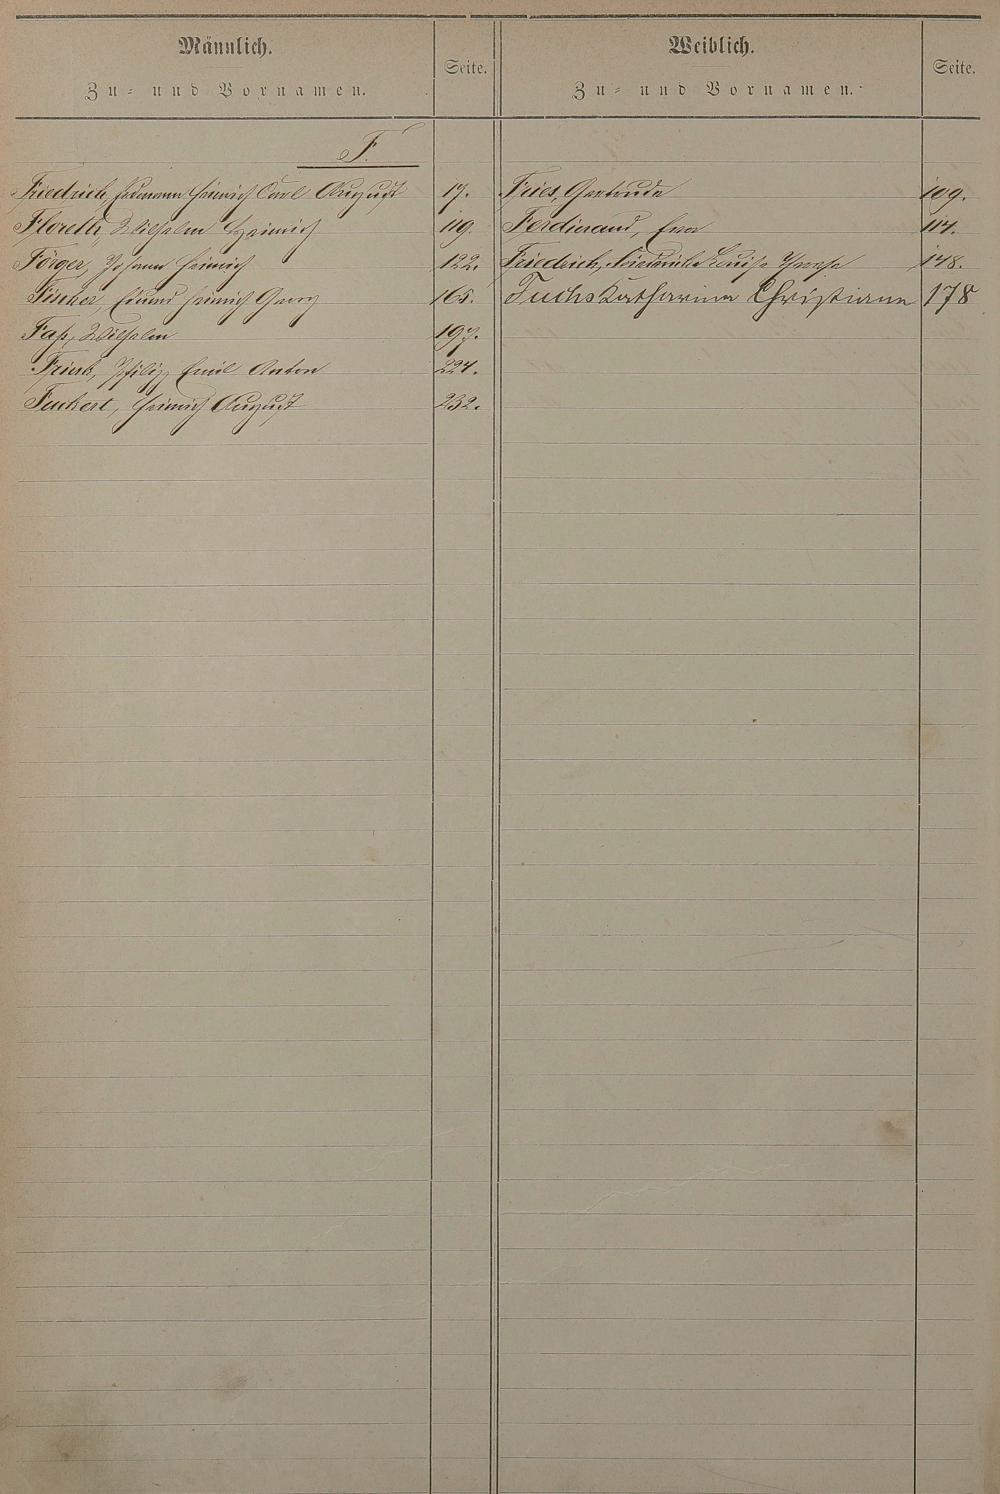 Männlich.
Zu- und Vornamen.
Seite.
Weiblich.
Zu- und Vornamen.
Seite.
F.
Friedrich, Hermann Heinrich Carl August 17.
Floreth, Wilhelm Heinrich 119.
Förger, Johann Heinrich 122.
Fischer, Eduard Heinrich Georg 165.
Faß, Wilhelm 197.
Philipp Emil Anton 224.
Heinrich August 232.
Fries, Gertrude 109.
Ferdinand, Eva 114.
Friedrich, Louise 148.
Fuchs Katharina Christiane 178